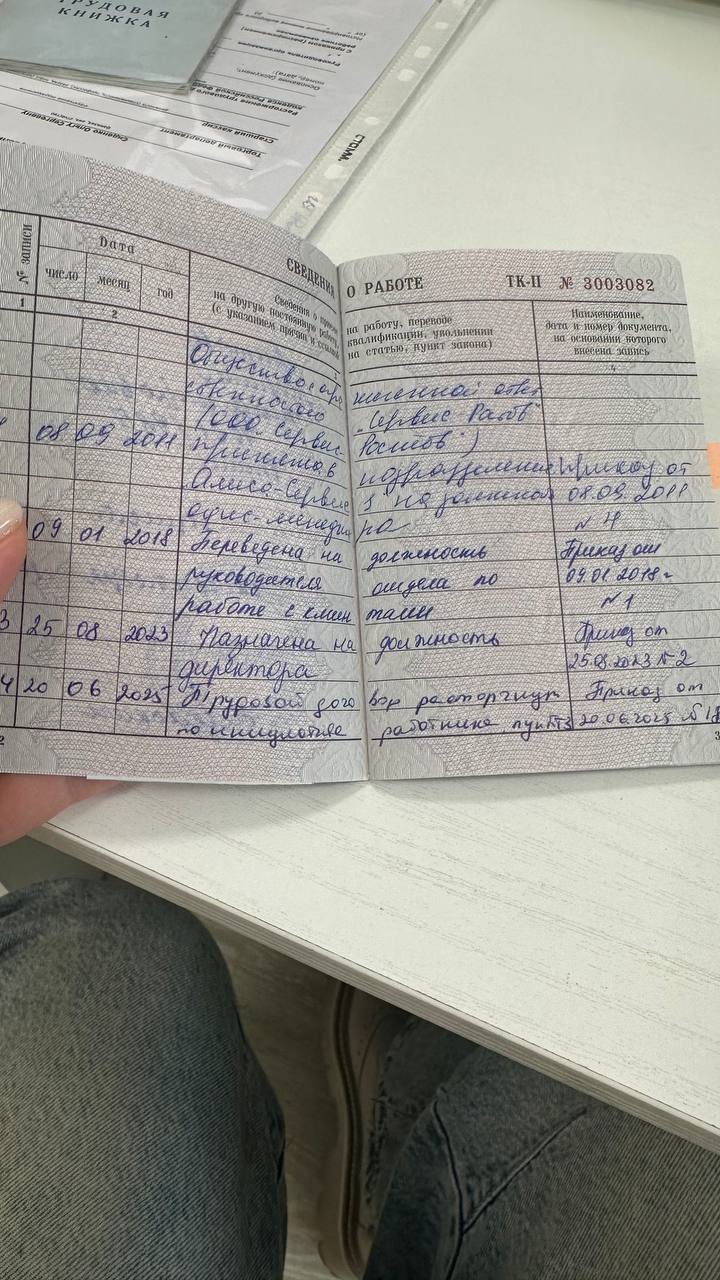 ТРУДОВАЯ
КНИЖКА
Торговый департамент
Старший кассир
Сиденко Ольгу Сергеевну
СТОММ.
СВЕДЕНИЯ О РАБОТЕ
ТК-II № 3003082
№ записи
Дата
число месяц год
Сведения о приеме на работу, переводе
на другую постоянную работу, квалификации, увольнении
(с указанием причин и ссылкой на статью, пункт закона)
Наименование,
дата и номер документа,
на основании которого
внесена запись
1 2 3 4
Общество с огра ниченной ответ
ственностью „Сервис Ростов"
(ООО „Сервис- Ростов")
08 09 2011 принята в подразделение Приказ от
Алиса-Сервис 08.09.2011
офис-менедже ра № 4
09 01 2018 Переведена на должность Приказ от
руководителя отдела по 09.01.2018 г
работе с клиен тами № 1
3 25 08 2023 Назначена на должность Приказ от
директора 25.08.2023 № 2
4 20 06 2025 Трудовой дого вор расторгнут Приказ от
по инициативе работника, пункт 3 20.06.2025 № 18
2
3